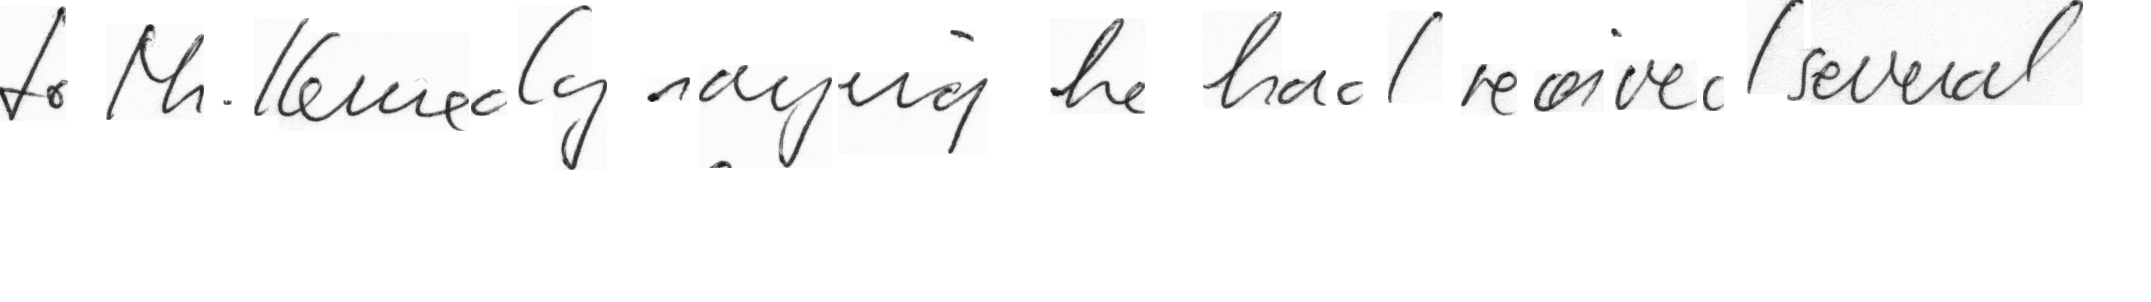 to Mr. Kennedy saying he had received several